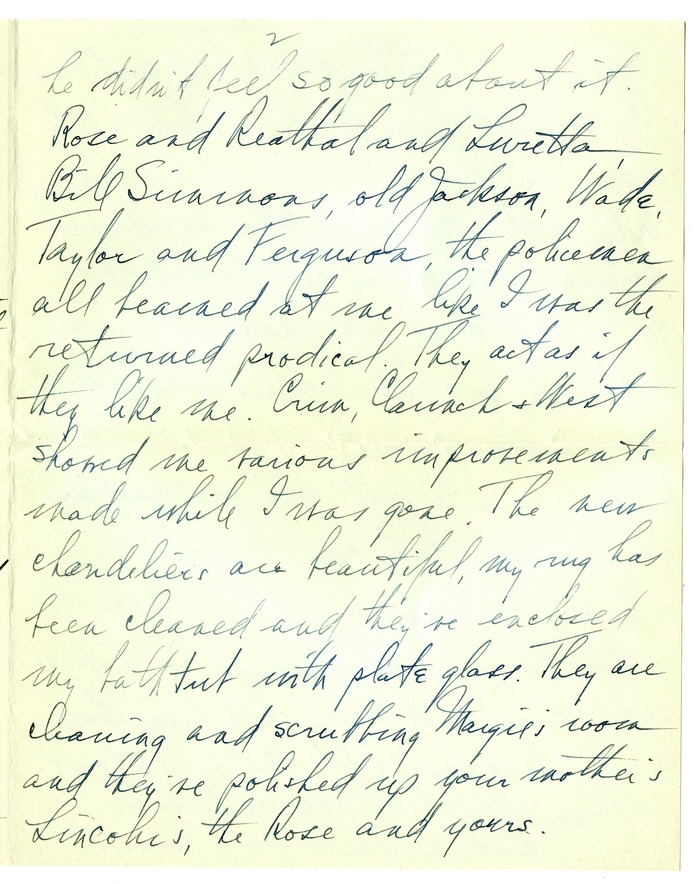 2
he didn't feel so good about it.
Rose and Reathal and Luretta,
Bill Simmons, old Jackson, Wade,
Taylor and Ferguson, the policemen
all beamed at me like I was the
returned prodical. They act as if
they like me. Crim, Claunch & West
showed me various improvements
made while I was gone. The new
chandeliers are beautiful, my rug has
been cleaned and they've enclosed
my bathtub with plate glass. They are
cleaning and scrubbing Margie's room
and they've polished up your mother's
Lincoln's, the Rose and yours.